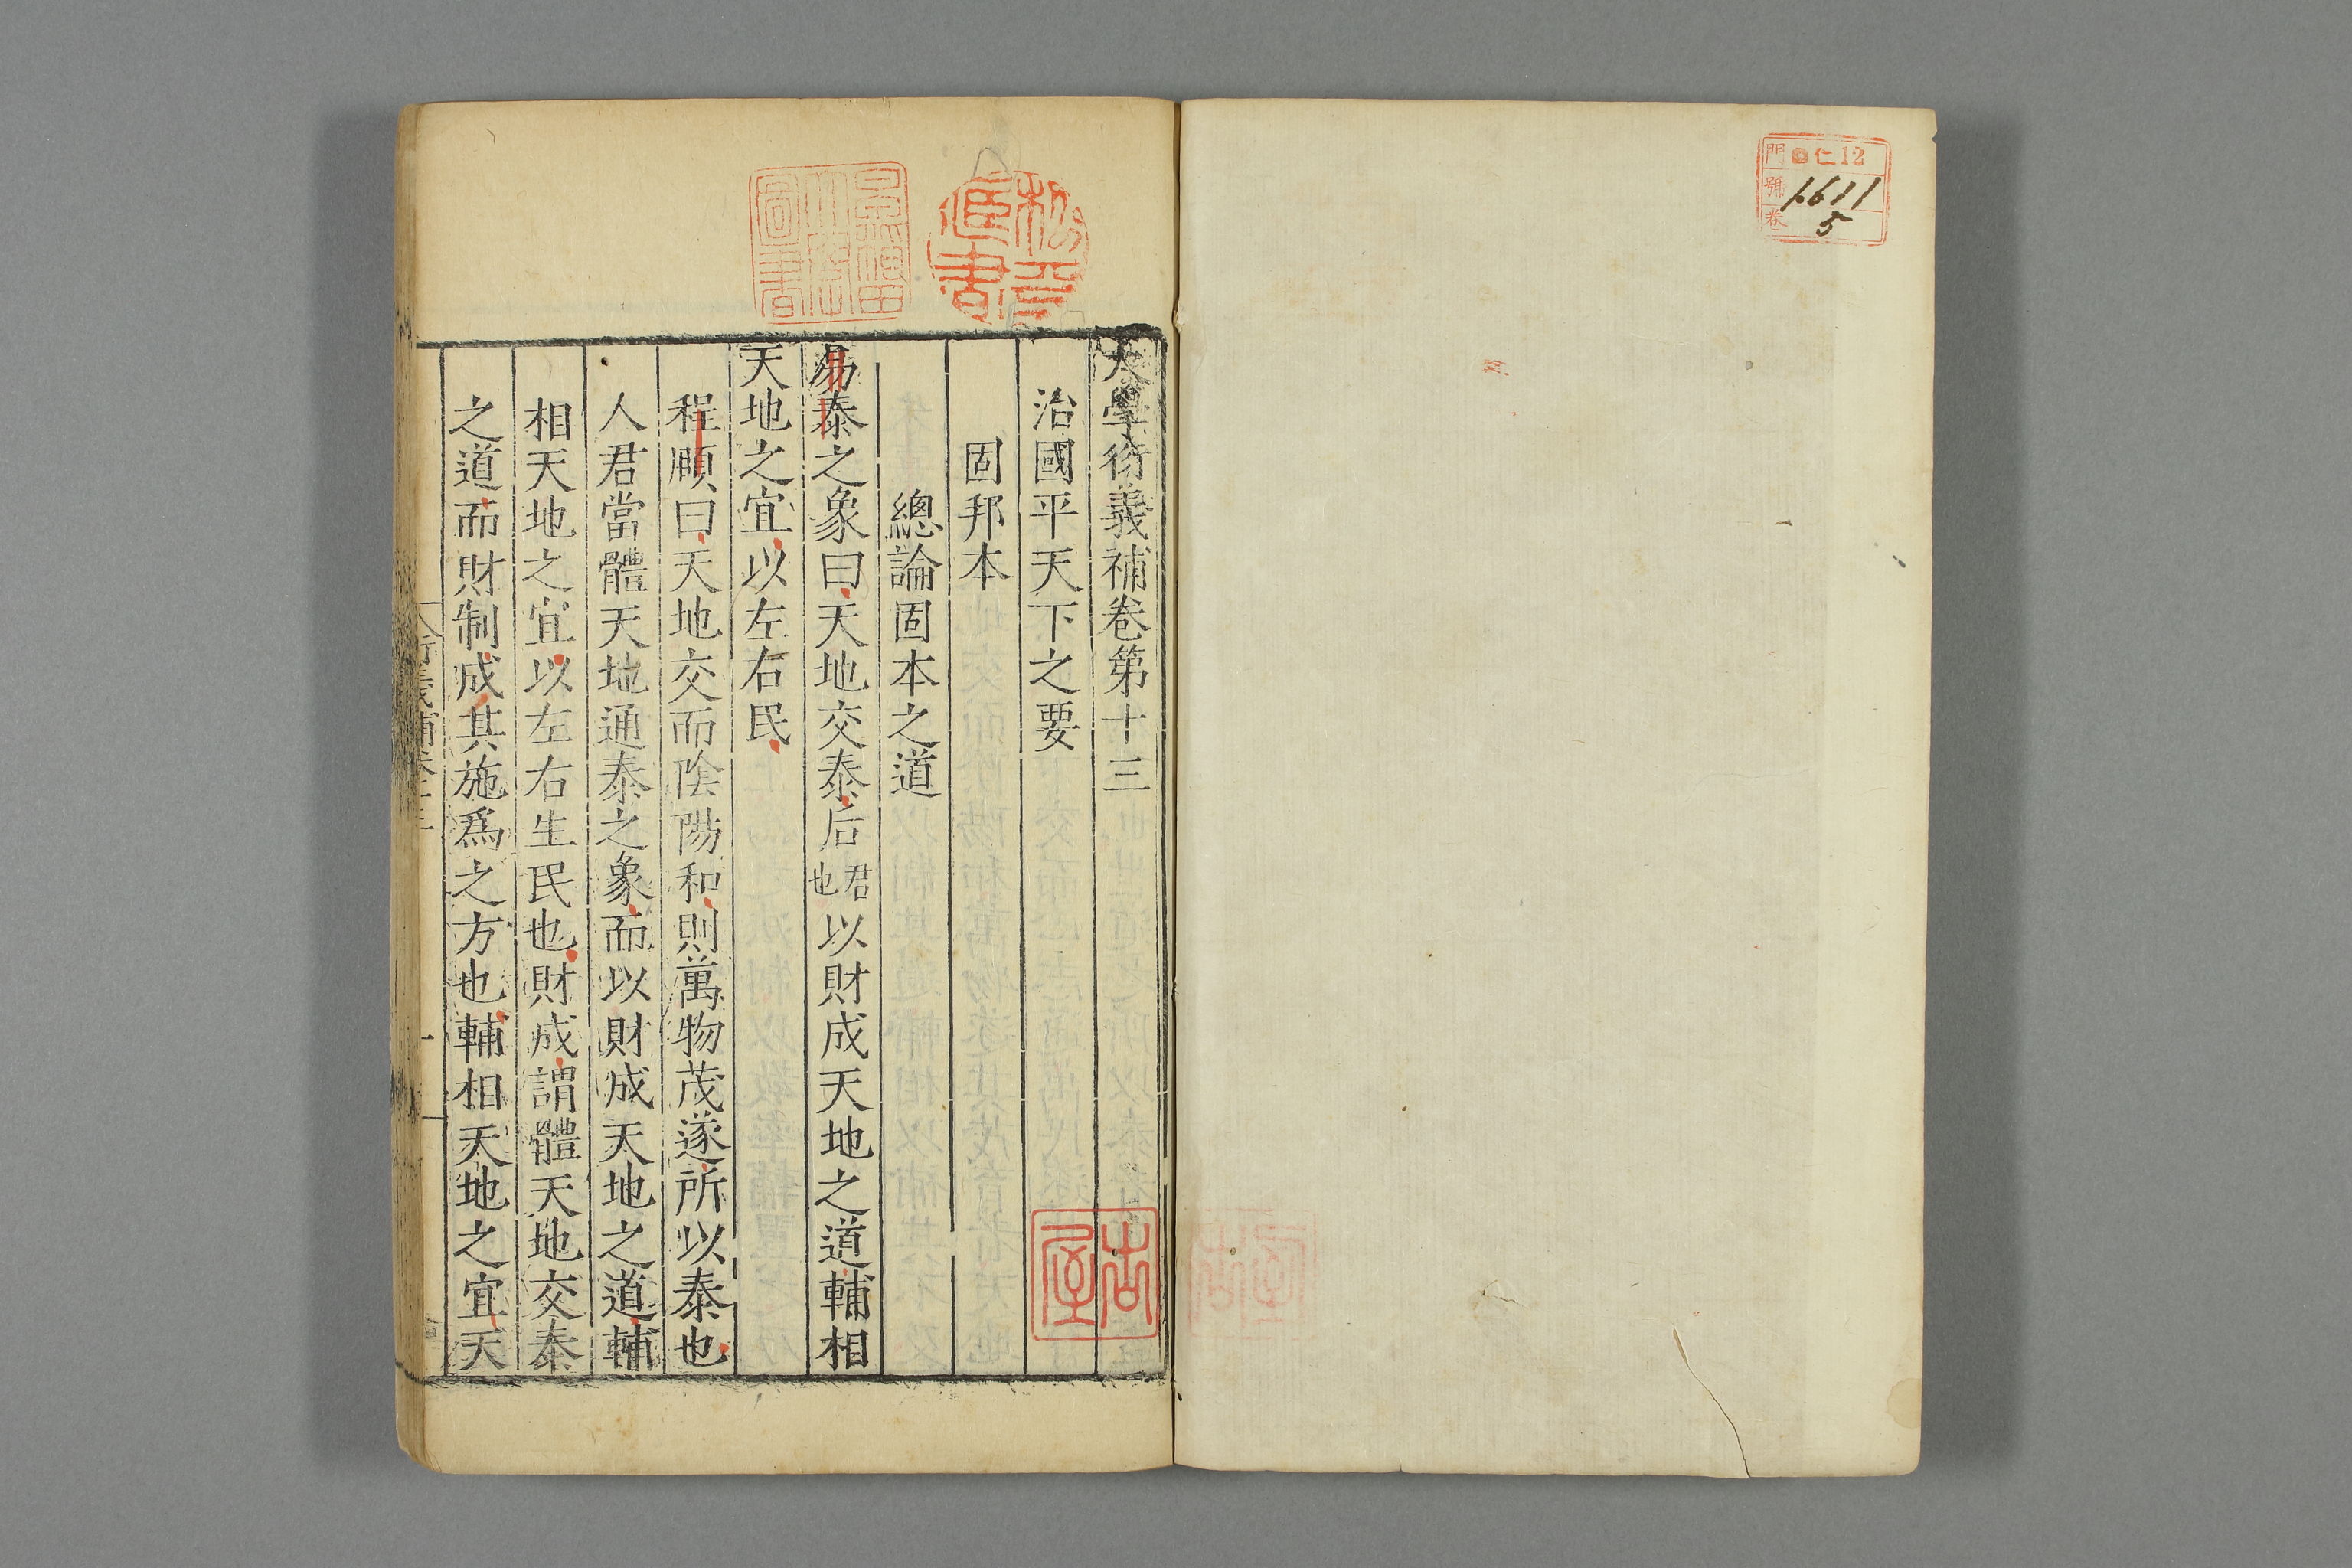 門 仁12
號 1611
卷 5
大學衍義補卷第十三
治國平天下之要
固邦本
總論固本之道
易泰之象曰天地交泰后君也以財成天地之道輔相
天地之宜以左右民
程頤曰天地交而陰陽和則萬物茂遂所以泰也
人君當體天地通泰之象而以財成天地之道輔
相天地之宜以左右生民也財成謂體天地交泰
之道而財制成其施爲之方也輔相天地之宜天